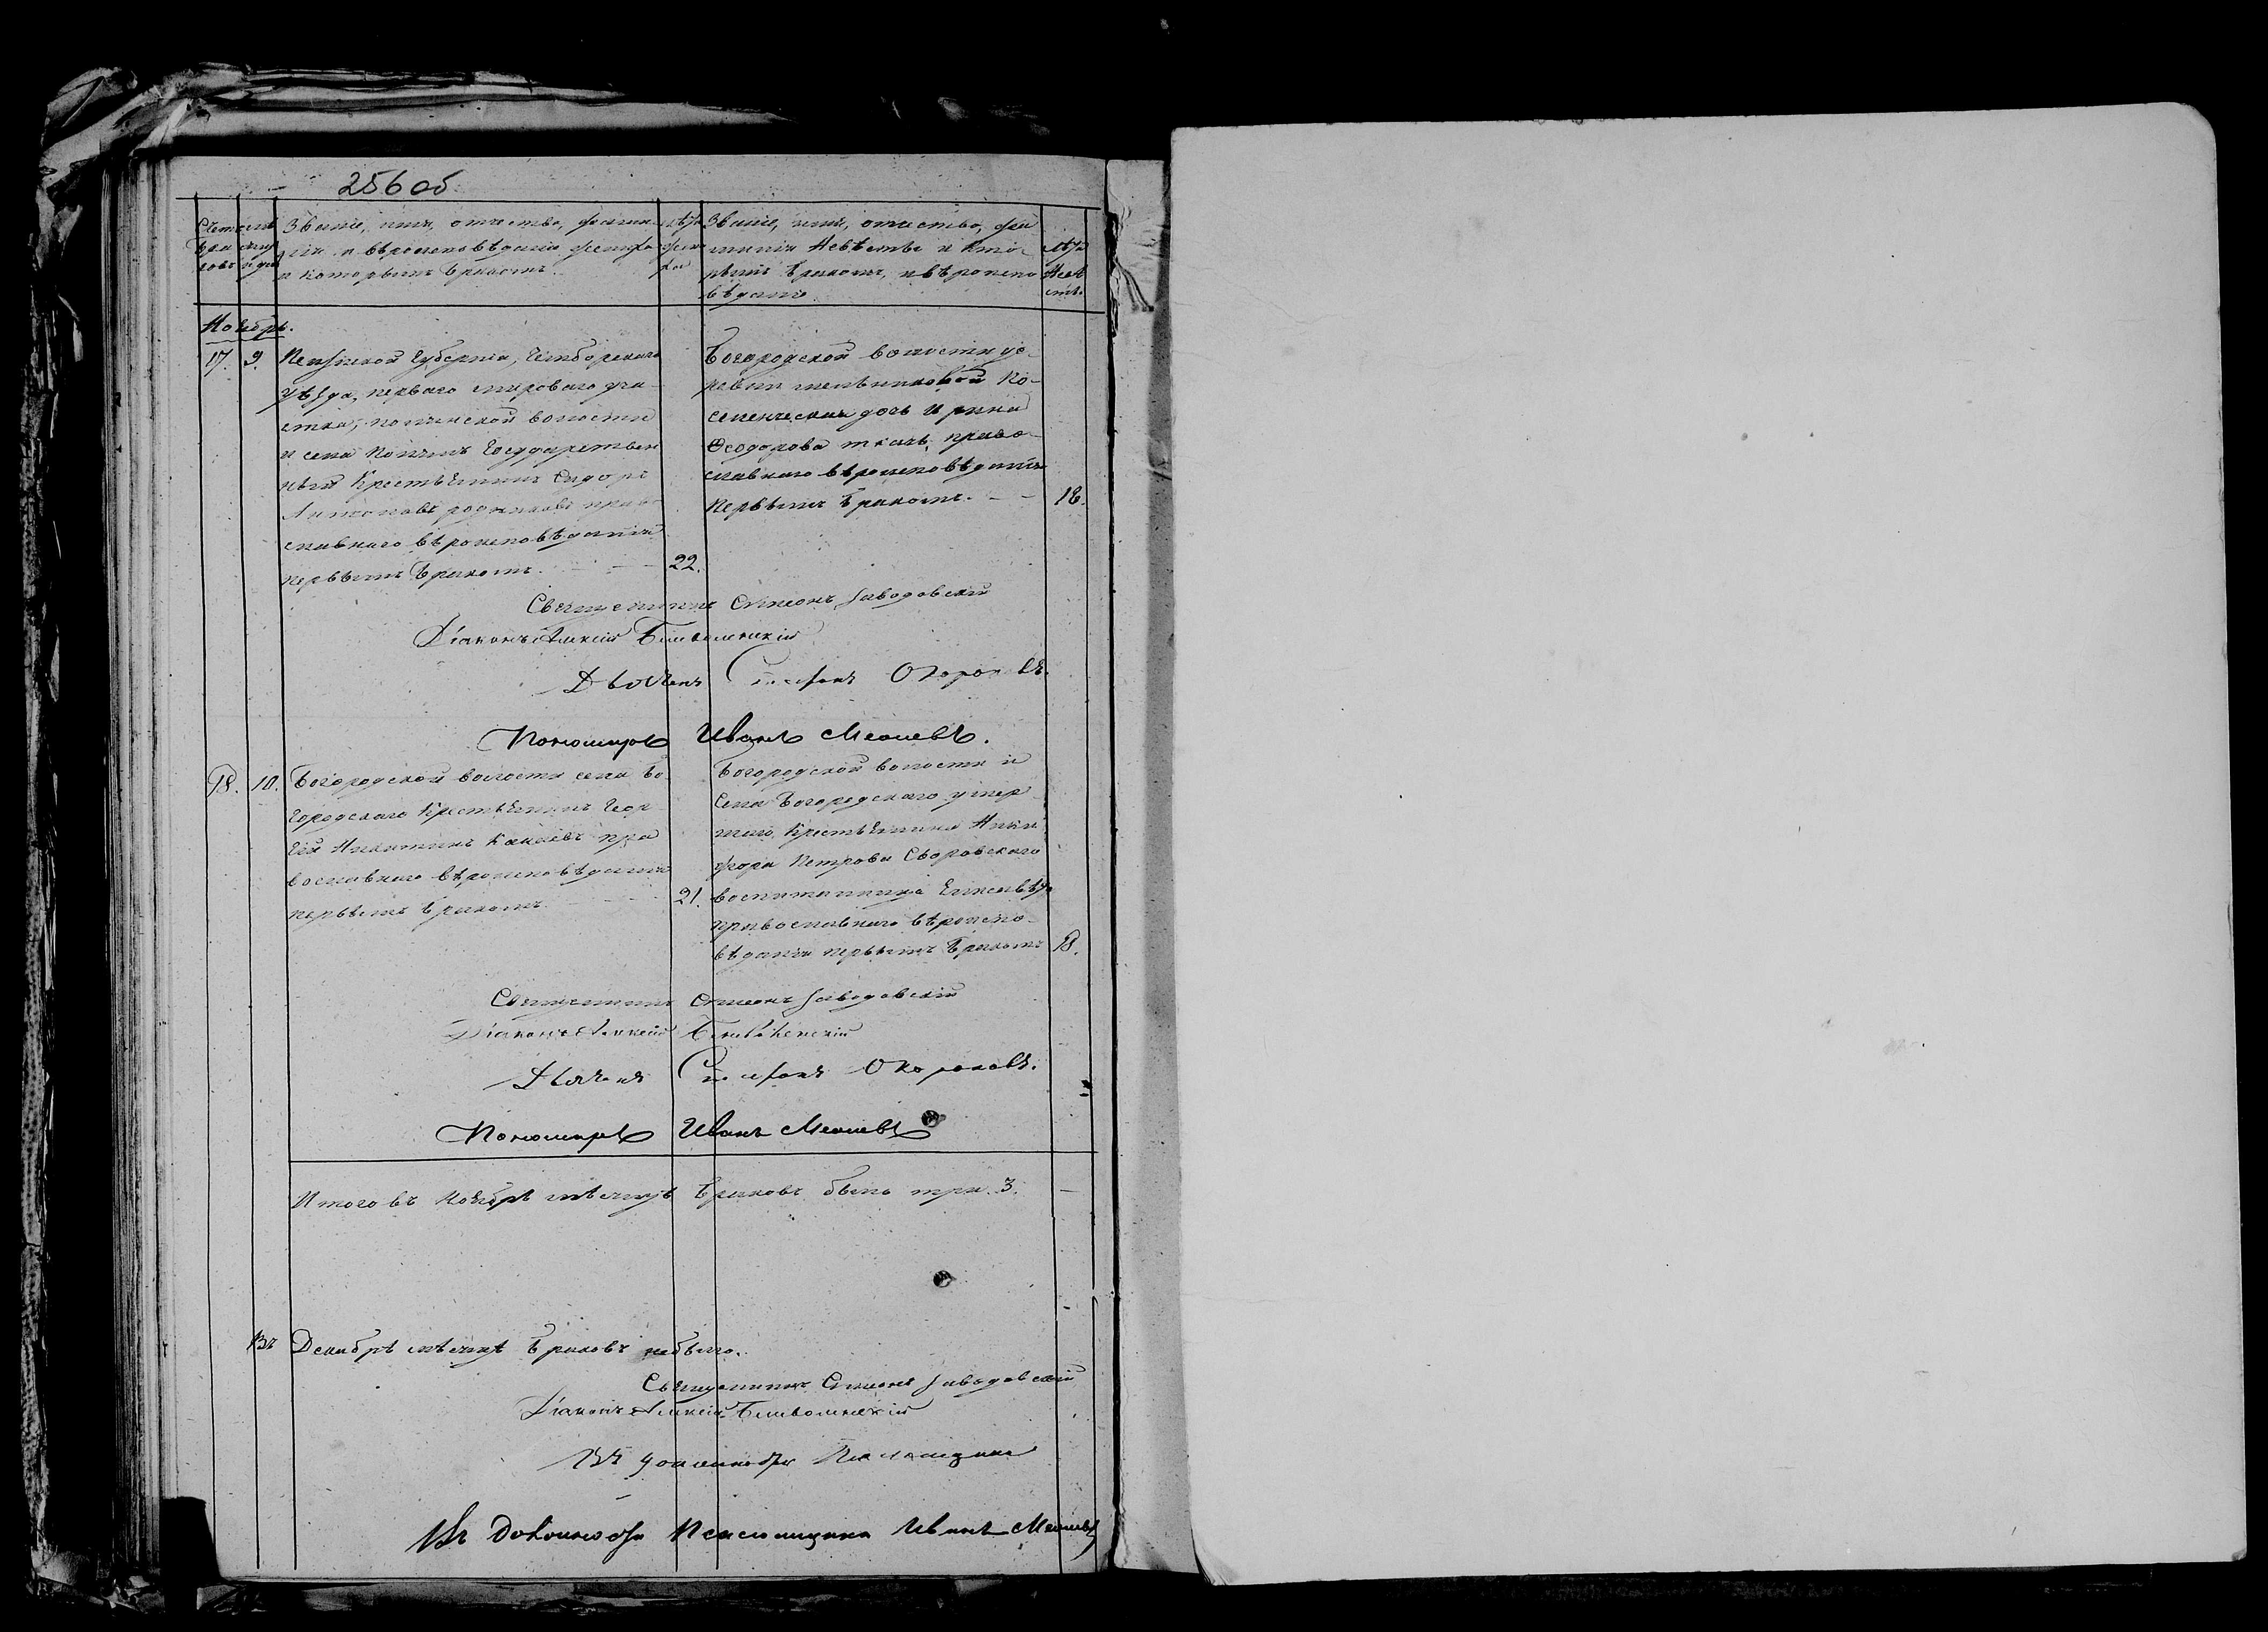 256 об
Счетъ бра ковъ
мѣся цъ и дни
Званіе, имя, отчество, фами-
лія и вѣроисповѣданіе жениха
и которымъ бракомъ.
лѣта жени ха
Званіе, имя, отчество, фа
милія невѣсты и кото-
рымъ бракомъ, и вѣроиспо
вѣданіе
лѣта невѣ сты.
Ноябрь.
17. 9. Пензенской Губерніи, Чембарскаго
уѣзда, перваго мироваго уча-
стка, волости
и села Государствен
ный Крестьянинъ Сидоръ
Антоновъ Родниковъ право
славнаго вѣроисповѣданія
первымъ бракомъ. - - - 22.
Богородской волости де-
ревни Мельниковой По-
селенческая дочь Ирина
Ѳеодорова Ткачь, право-
славнаго вѣроисповѣданія
первымъ бракомъ. - - 18.
Священникъ Симеонъ Заводовскій
Діаконъ Алексій
Дьячекъ Окороковъ.
Пономарь Иванъ
18. 10. Богородской волости села Бо-
городскаго Крестьянинъ Геор-
гій Никитинъ Канаевъ пра
вославнаго вѣроисповѣданія
первымъ бракомъ. - - - 21.
Богородской волости и
Села Богородскаго умер-
шаго Крестьянина Ники
фора Петрова
воспитанница Елисавета
православнаго вѣроиспо-
вѣданія первымъ бракомъ 18.
Священникъ Симеонъ Заводовскій
Діаконъ Алексій
Дьячекъ Окороковъ.
Пономарь Иванъ
Итого въ Ноябрѣ мѣсяцѣ браковъ было три. 3. —
Въ Декабрѣ мѣсяцѣ браковъ небыло.
Священникъ Симеонъ Заводовскій
Діаконъ Алексій
Въ должности Псаломщика
Въ должности Псаломщика Иванъ